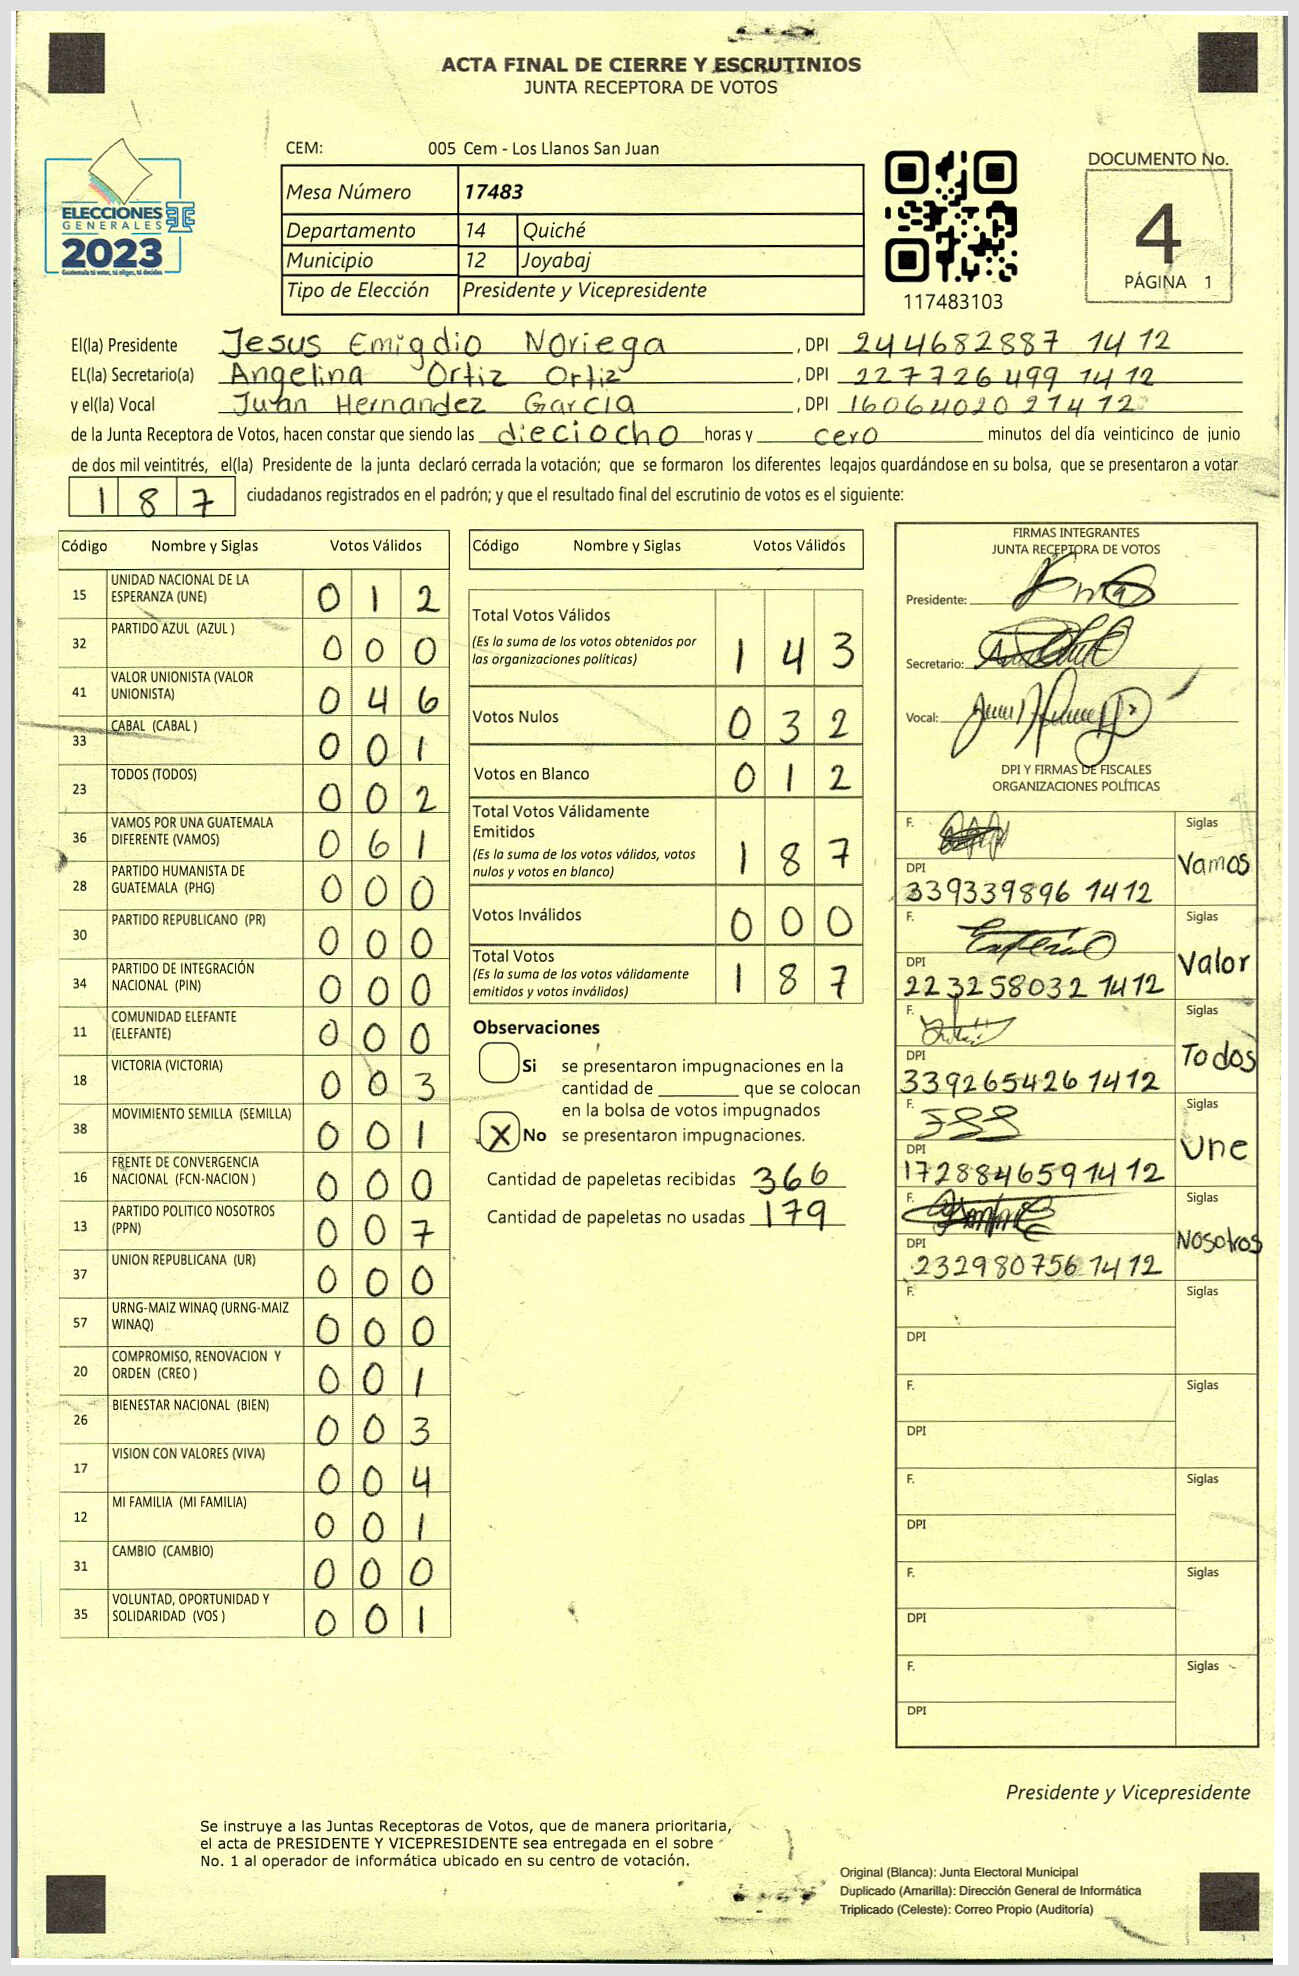 ACTA FINAL DE CIERRE Y ESCRUTINIOS
JUNTA RECEPTORA DE VOTOS
ELECCIONES
GENERALES
2023
Guatemala tú votas, tú eliges, tú decides
CEM: 005 Cem - Los Llanos San Juan
Mesa Número 17483
Departamento 14 Quiché
Municipio 12 Joyabaj
Tipo de Elección Presidente y Vicepresidente
117483103
DOCUMENTO No.
4
PÁGINA 1
El(la) Presidente Jesus Emigdio Noriega , DPI 244682887 14 12
EL(la) Secretario(a) Angelina Ortiz Ortiz , DPI 227726499 14 12
y el(la) Vocal Juan Hernandez García , DPI 160640202 14 12
de la Junta Receptora de Votos, hacen constar que siendo las dieciocho horas y cero minutos del día veinticinco de junio
de dos mil veintitrés, el(la) Presidente de la junta declaró cerrada la votación; que se formaron los diferentes legajos guardándose en su bolsa, que se presentaron a votar
187 ciudadanos registrados en el padrón; y que el resultado final del escrutinio de votos es el siguiente:
Código Nombre y Siglas Votos Válidos
15 UNIDAD NACIONAL DE LA
ESPERANZA (UNE) 0 1 2
32 PARTIDO AZUL (AZUL ) 0 0 0
41 VALOR UNIONISTA (VALOR
UNIONISTA) 0 4 6
33 CABAL (CABAL ) 0 0 1
23 TODOS (TODOS) 0 0 2
36 VAMOS POR UNA GUATEMALA
DIFERENTE (VAMOS) 0 6 1
28 PARTIDO HUMANISTA DE
GUATEMALA (PHG) 0 0 0
30 PARTIDO REPUBLICANO (PR) 0 0 0
34 PARTIDO DE INTEGRACIÓN
NACIONAL (PIN) 0 0 0
11 COMUNIDAD ELEFANTE
(ELEFANTE) 0 0 0
18 VICTORIA (VICTORIA) 0 0 3
38 MOVIMIENTO SEMILLA (SEMILLA) 0 0 1
16 FRENTE DE CONVERGENCIA
NACIONAL (FCN-NACION ) 0 0 0
13 PARTIDO POLITICO NOSOTROS
(PPN) 0 0 7
37 UNION REPUBLICANA (UR) 0 0 0
57 URNG-MAIZ WINAQ (URNG-MAIZ
WINAQ) 0 0 0
20 COMPROMISO, RENOVACION Y
ORDEN (CREO ) 0 0 1
26 BIENESTAR NACIONAL (BIEN) 0 0 3
17 VISION CON VALORES (VIVA) 0 0 4
12 MI FAMILIA (MI FAMILIA) 0 0 1
31 CAMBIO (CAMBIO) 0 0 0
35 VOLUNTAD, OPORTUNIDAD Y
SOLIDARIDAD (VOS ) 0 0 1
Código Nombre y Siglas Votos Válidos
Total Votos Válidos
(Es la suma de los votos obtenidos por
las organizaciones políticas) 1 4 3
Votos Nulos 0 3 2
Votos en Blanco 0 1 2
Total Votos Válidamente
Emitidos
(Es la suma de los votos válidos, votos
nulos y votos en blanco) 1 8 7
Votos Inválidos 0 0 0
Total Votos
(Es la suma de los votos válidamente
emitidos y votos inválidos) 1 8 7
Observaciones
Si se presentaron impugnaciones en la
cantidad de ________ que se colocan
en la bolsa de votos impugnados
X No se presentaron impugnaciones.
Cantidad de papeletas recibidas 366
Cantidad de papeletas no usadas 179
FIRMAS INTEGRANTES
JUNTA RECEPTORA DE VOTOS
Presidente:
Secretario:
Vocal:
DPI Y FIRMAS DE FISCALES
ORGANIZACIONES POLÍTICAS
F. Siglas
Vamos
DPI
339339896 1412
F. Siglas
Valor
DPI
223258032 1412
F. Siglas
Todos
DPI
339265426 1412
F. Siglas
Une
DPI
172884659 1412
F. Siglas
Nosotros
DPI
232980756 1412
F. Siglas
DPI
F. Siglas
DPI
F. Siglas
DPI
F. Siglas
DPI
F. Siglas
DPI
Presidente y Vicepresidente
Se instruye a las Juntas Receptoras de Votos, que de manera prioritaria,
el acta de PRESIDENTE Y VICEPRESIDENTE sea entregada en el sobre
No. 1 al operador de informática ubicado en su centro de votación.
Original (Blanca): Junta Electoral Municipal
Duplicado (Amarilla): Dirección General de Informática
Triplicado (Celeste): Correo Propio (Auditoría)